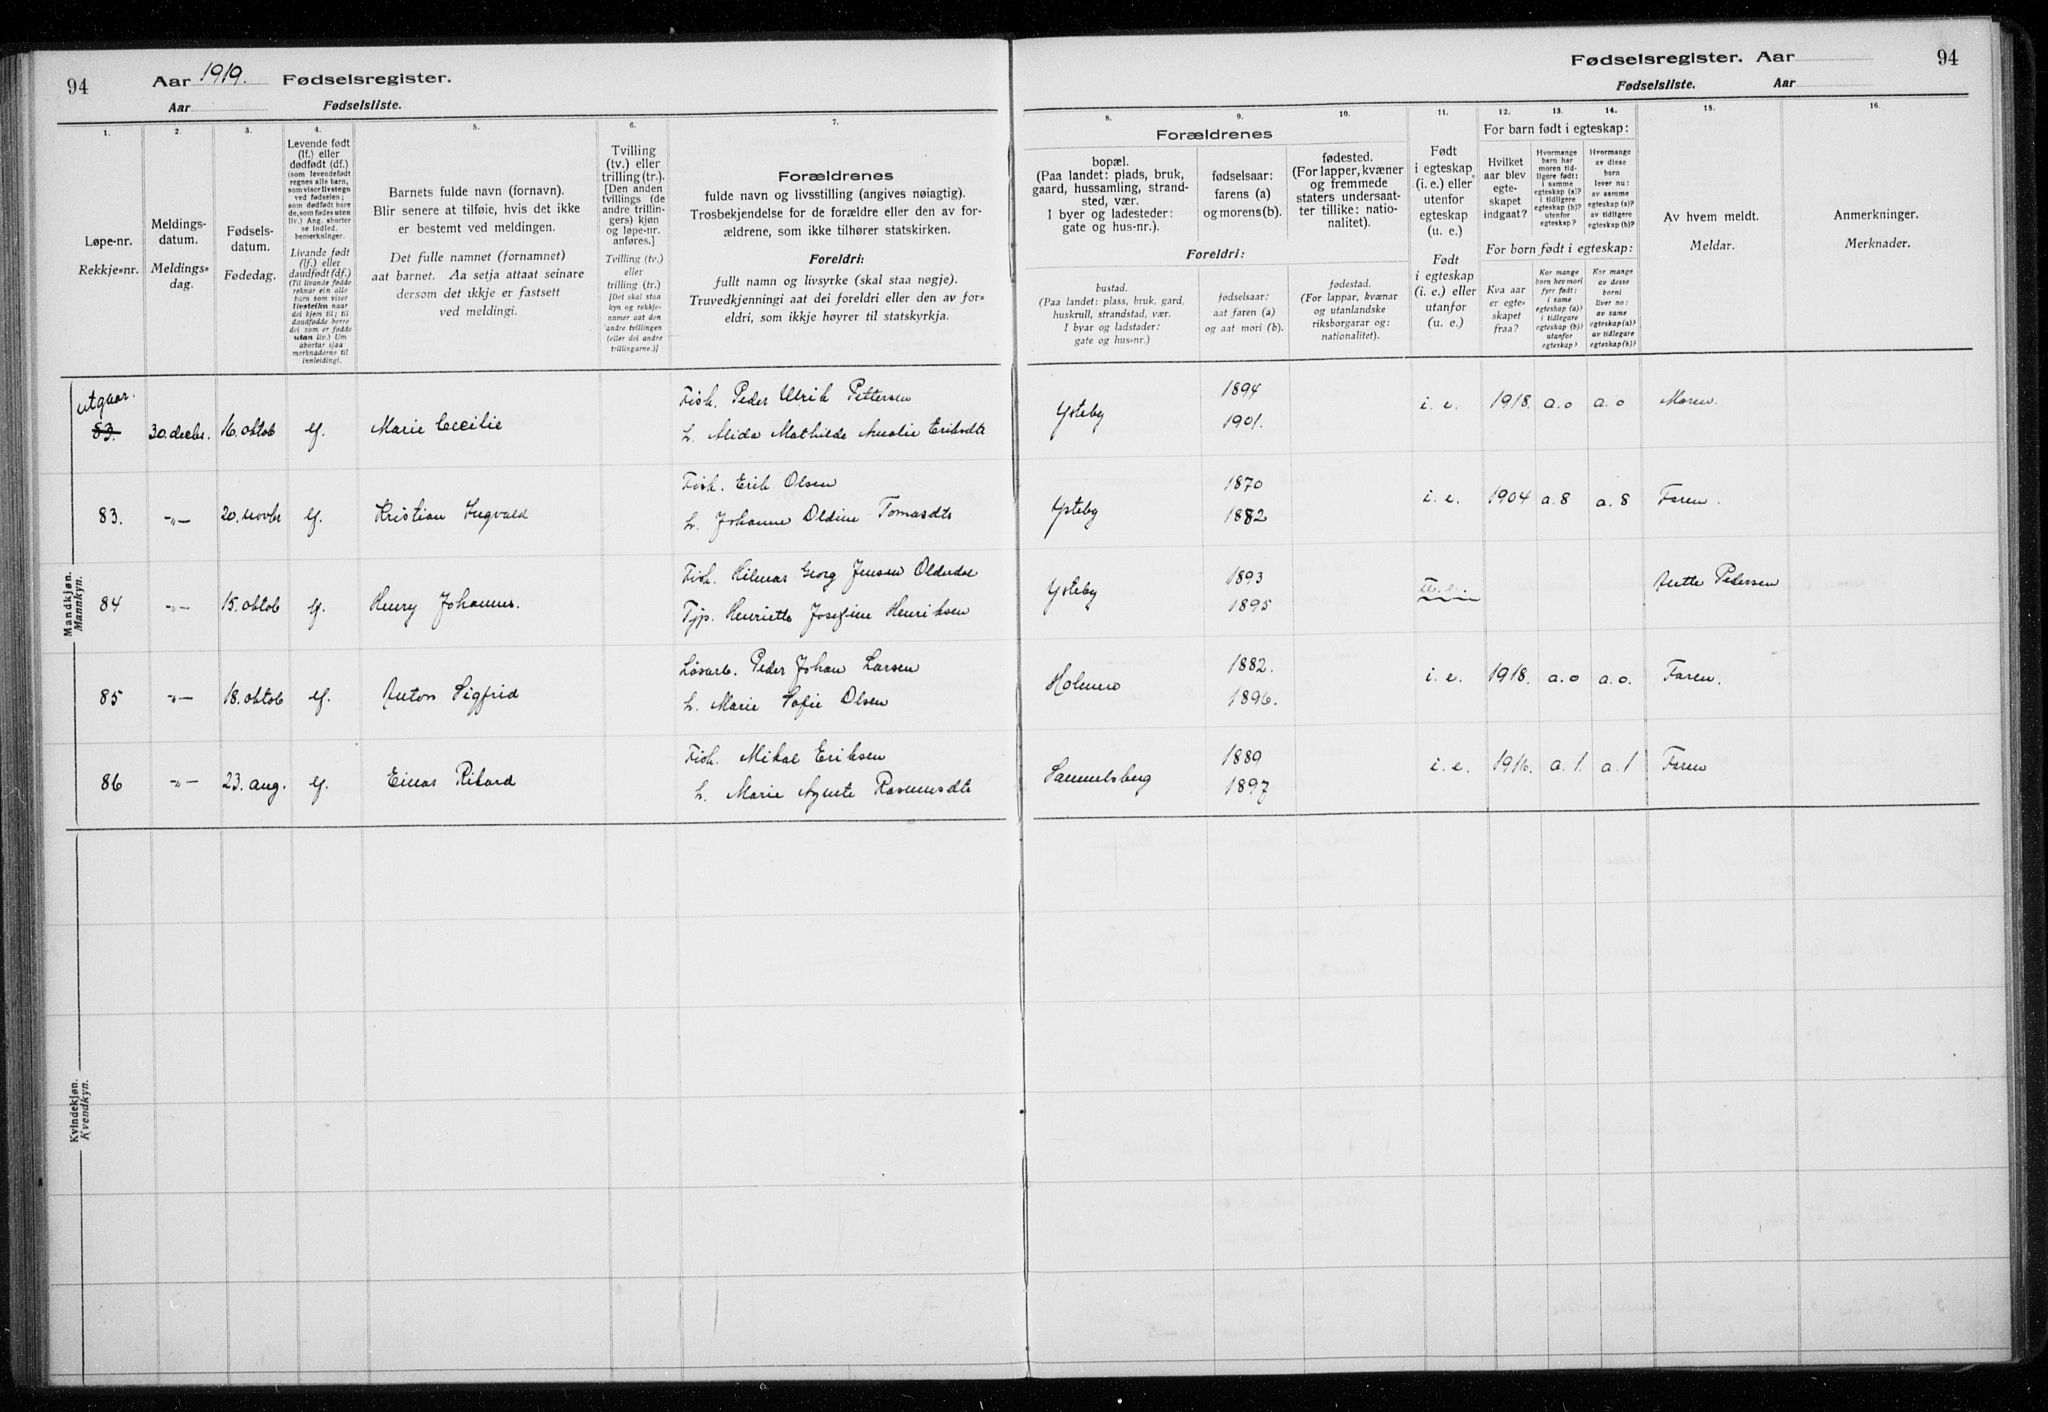 94 Aar 1919. Fødselsregister.
Aar Fødselsliste.
Fødselsregister. Aar 94
Fødselsliste. Aar
1. 2. 3. 4. 5. 6. 7.
Løpe-nr.
Rekkje=nr.
Meldings-
datum.
Meldings=
dag.
Fødsels-
datum.
Fødedag.
Levende født
(lf.) eller
dødfødt (df.)
(som levendefødt
regnes alle barn,
som viser livstegn
ved fødselen;
som dødfødt bare
de, som fødes uten
liv.) Ang. aborter
se indled.
bemerkninger.
Livande født
(lf.) eller
daudfødt (df.)
(Til livande fødde
reknar ein alle
barn som viser
livsteikn naar
dei kjem til; til
daudfødde berre
dei som er fødde
utan liv.) Um
abortar sjaa
merknaderne til
innleiding).
Barnets fulde navn (fornavn).
Blir senere at tilføie, hvis det ikke
er bestemt ved meldingen.
Det fulle namnet (fornamnet)
aat barnet. Aa setja attaat seinare
dersom det ikkje er fastsett
ved meldingi.
Tvilling
(tv.) eller
trilling (tr.).
[Den anden
tvillings (de
andre trillin-
gers) kjøn
og løpe-nr.
anføres.]
Tvilling (tv.)
eller
trilling (tr.)
[Det skal staa
kyn og rekkje-
namer aat den
andre tvillingen
(eller dei andre
trillingarne.)]
Forældrenes
fulde navn og livsstilling (angives nøiagtig).
Trosbekjendelse for de forældre eller den av for-
ældrene, som ikke tilhører statskirken.
Foreldri:
fullt namn og livsyrke (skal staa nøgje).
Truvedkjenningi aat dei foreldri eller den av for=
eldri, som ikkje høyrer til statskyrkja.
8. 9. 10. 11. 12. 13. 14. 15. 16.
Forældrenes
bopæl.
(Paa landet: plads, bruk,
gaard, hussamling, strand-
sted, vær.
I byer og ladesteder:
gate og hus-nr.).
fødselsaar:
farens (a)
og morens (b).
fødested.
(For lapper, kvæner
og fremmede
staters undersaat-
ter tillike: natio-
nalitet).
Foreldri:
bustad.
(Paa landet: plass, bruk, gard,
huskrull, strandstad, vær.
I byar og ladstader:
gate og hus-nr.)
fødselsaar:
aat faren (a)
og aat mori (b).
fødestad.
(For lappar, kvænar
og utanlandske
riksborgarar og:
nationalitet).
Født
i egteskap
(i. e.) eller
utenfor
egteskap
(u. e.)
Født
i egteskap
(i. e.) eller
utanfor
(u. e.)
For barn født i egteskap:
Hvilket
aar blev
egte-
skapet
indgaat?
Hvormange
barn har
moren tid-
ligere født:
i samme
egteskap (a)?
i tidligere
egteskap (b)?
utenfor
egteskap?
Hvormange
av disse
barn
lever nu:
av samme
egteskap (a)?
av tidligere
egteskap (b)?
For born født i egteskap:
Kva aar
er egte-
skapet
fraa?
Kor mange
born hev mori
fyrr født:
i same
egteskap (a)?
i tidlegare
egteskap (b)?
utanfor
egteskap?
Kor mange
av desse
borni
liver no:
av same
egteskap (a)?
av tidlegare
egteskap (b)?
Av hvem meldt.
Meldar.
Anmerkninger.
Merknader.
Mandkjøn.
Mannkyn.
utgaar.
83. 30. decbr. 16. oktob lf. Marie Cecilie Fisk. Peder Ulrik Pettersen
L. Alida Mathilde Amalie Eriksdtr Ysteby 1894 1901. i. e. 1918. a. 0 a. 0 Moren.
83. -"- 20. novbr lf. Kristian Ingvald Fisk. Erik Olsen
L. Johanne Oldine Tomasdtr Ysteby 1870 1882 i. e. 1904 a. 8 a. 8 Faren.
84 -"- 15. oktob lf. Henry Johannes. Fisk. Hilmar Georg Jensen Olderdal
Tjp. Henriette Josefine Henriksen Ysteby 1893 1895 u. e. Antte Pedersen
85 -"- 18. oktob lf. Anton Sigfrid Løsarb. Peder Johan Larsen
L. Marie Sofie Olsen Holmero 1882. 1896. i. e. 1918. a. 0 a. 0. Faren.
86 -"- 23. aug. lf. Einar Rikard Fisk. Mikal Eriksen
L. Marie Agnete Rasmusdtr Samuelsberg 1889 1897 i. e. 1916. a. 1. a. 1 Faren
Kvindekjøn.
Kvendkyn.